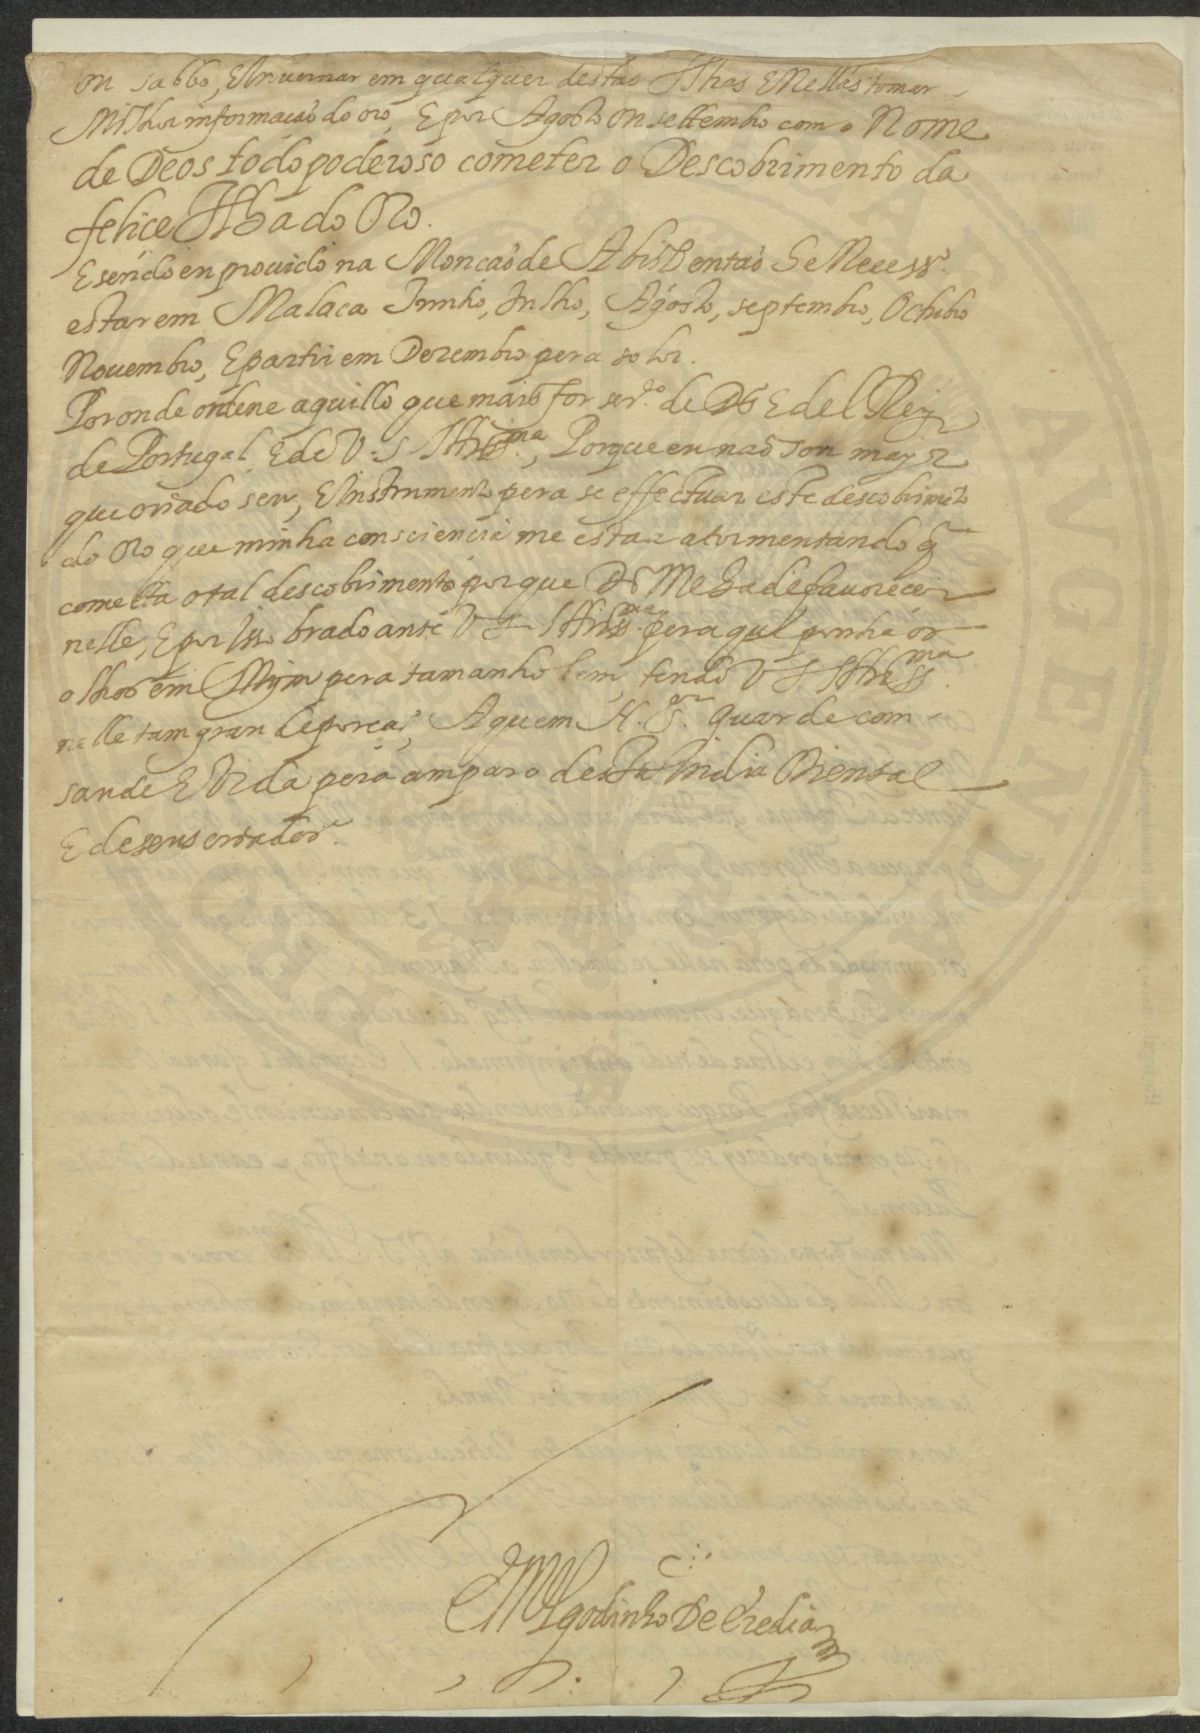 ou sabbo, E Invernar em qualquer destas Ilhas E Nellas tomar
Milhor informação do oro, E por Agosto ou settembro com o Nome
de Deos todo poderoso cometer o Descobrimento da
felice Ilha do Oro.
E sendo eu provido na Monção de Abril entaõ Se Necessr.º
estar em Malaca Junho, Julho, Agosto, septembro, Octubro
Novembro, E partir em Dezembro pera solor.
Por onde ordene aquillo que mais for ser.ço de Ds E del Rey
de Portugal E de V. S Illris.ma, Porque eu naõ son mayz
que criado seu, E Instrumento pera se effectuar este descobrimẽto
do Oro que minha consciencia me estaa atormentando q̃
cometta o tal descobrimento porque Ds Me ha de favorecer
nelle, E por Isso brado ante V S Illriss.ma pera que ponha os
olhos em Mym pera tamanho bem, tendo V S Illriss.ma
nelle tam grande porcaõ, A quem N. S.or guarde com
saude E Vida pera amparo desta India Oriental
E de seus criados.
EMgodinho De Eredia